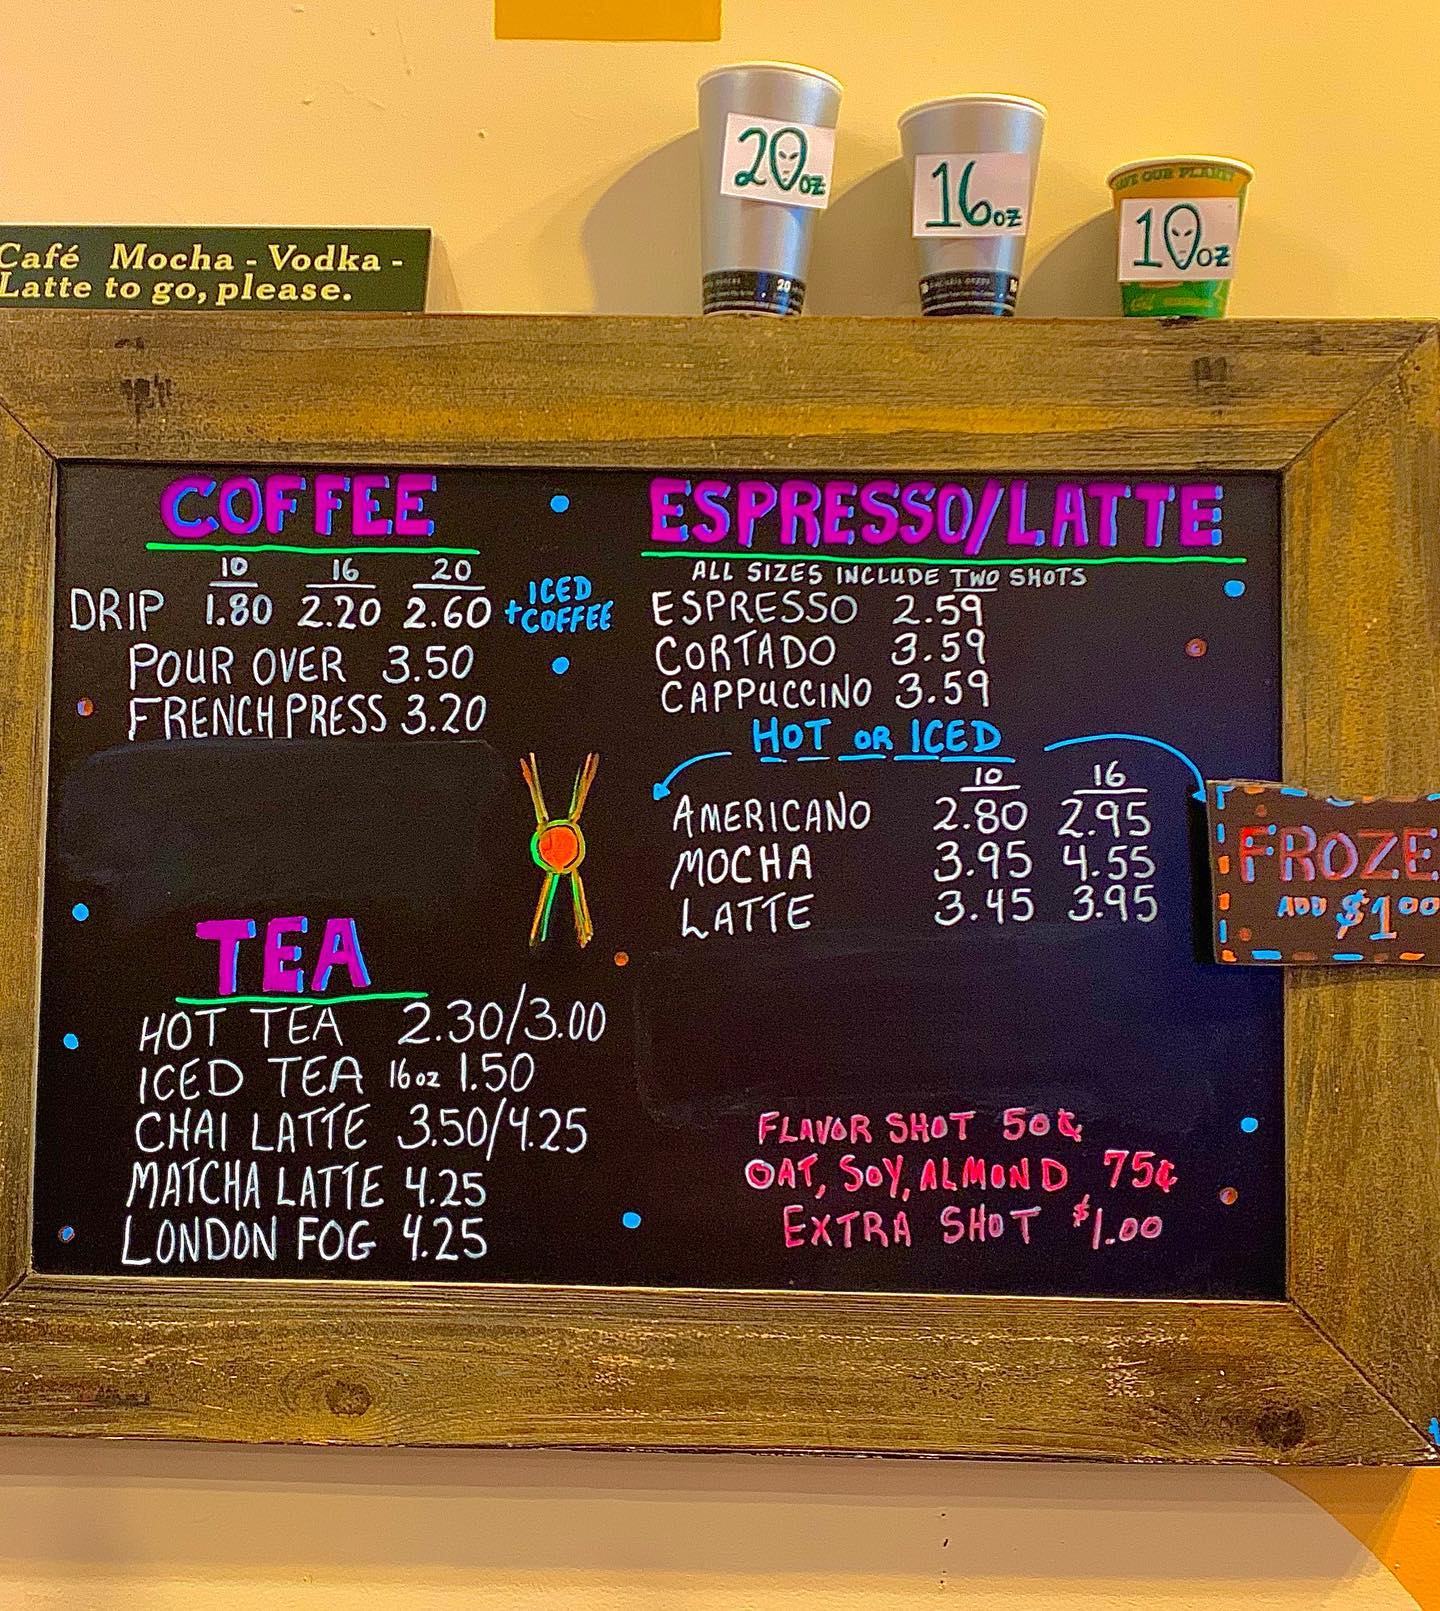 20oz
16oz
SAVE OUR PLANET
10oz
Café Mocha - Vodka -
Latte to go, please.
20
16
COFFEE
10 16 20
DRIP 1.80 2.20 2.60 + ICED COFFEE
POUR OVER 3.50
FRENCH PRESS 3.20
TEA
HOT TEA 2.30/3.00
ICED TEA 16oz 1.50
CHAI LATTE 3.50/4.25
MATCHA LATTE 4.25
LONDON FOG 4.25
ESPRESSO/LATTE
ALL SIZES INCLUDE TWO SHOTS
ESPRESSO 2.59
CORTADO 3.59
CAPPUCCINO 3.59
HOT OR ICED
10 16
AMERICANO 2.80 2.95
MOCHA 3.95 4.55
LATTE 3.45 3.95
FROZE
ADD $1.00
FLAVOR SHOT 50¢
OAT, SOY, ALMOND 75¢
EXTRA SHOT $1.00